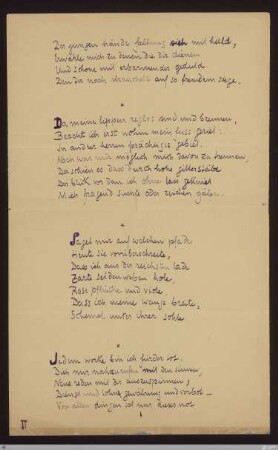 Der jungen hände faltung sich mit huld,
Erwähle mich zu denen die dir dienen
Und schone mit erbarmender geduld
Den der noch strauchelt auf so fremdem stege.
*
Da meine lippen reglos sind und brennen
Beacht ich erst wohin mein fuss geriet:
In andrer herren prächtiges gebiet.
Noch war mir möglich mich davon zu trennen,
Da schien es dass durch hohe gitterstäbe
Der blick vor dem ich ohne lass gekniet
Mich fragend suchte oder zeichen gäbe.
*
Saget mir auf welchem pfade
Heute sie vorüberschreite,
Dass ich aus der reichsten lade
Zarte seidenweben hole,
Rose pflücke und viole
Dass ich meine wange breite,
Schemel unter ihrer sohle
*
Jedem werke bin ich fürder tot.
Dich mir nahzurufen mit den sinnen,
Neue reden mit dir auszuspinnen,
Dienst und lohn gewährung und verbot—
Von allen dingen ist nur dieses not
IV